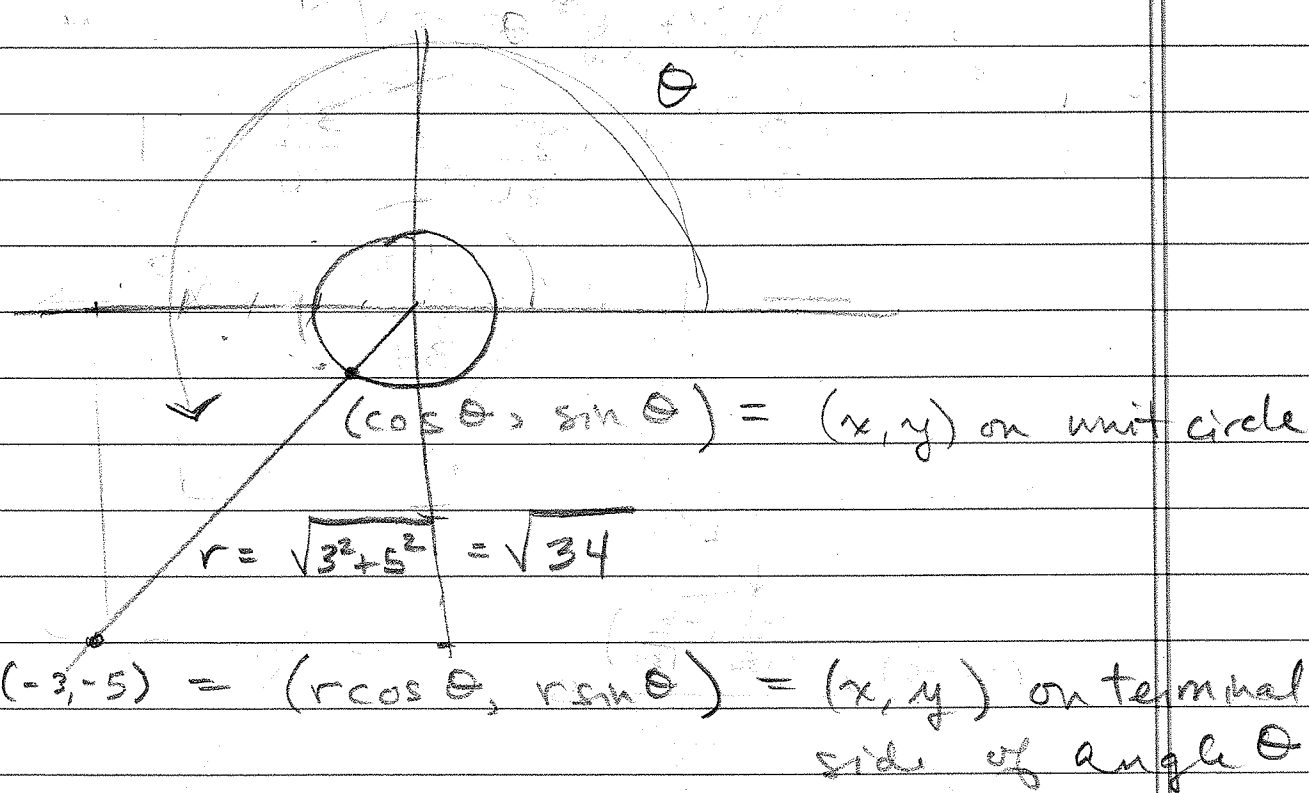 θ
(cos θ, sin θ) = (x, y) on unit circle
r = √3²+5² = √34
(-3,-5) = (r cos θ, r sin θ) = (x, y) on terminal
side of angle θ